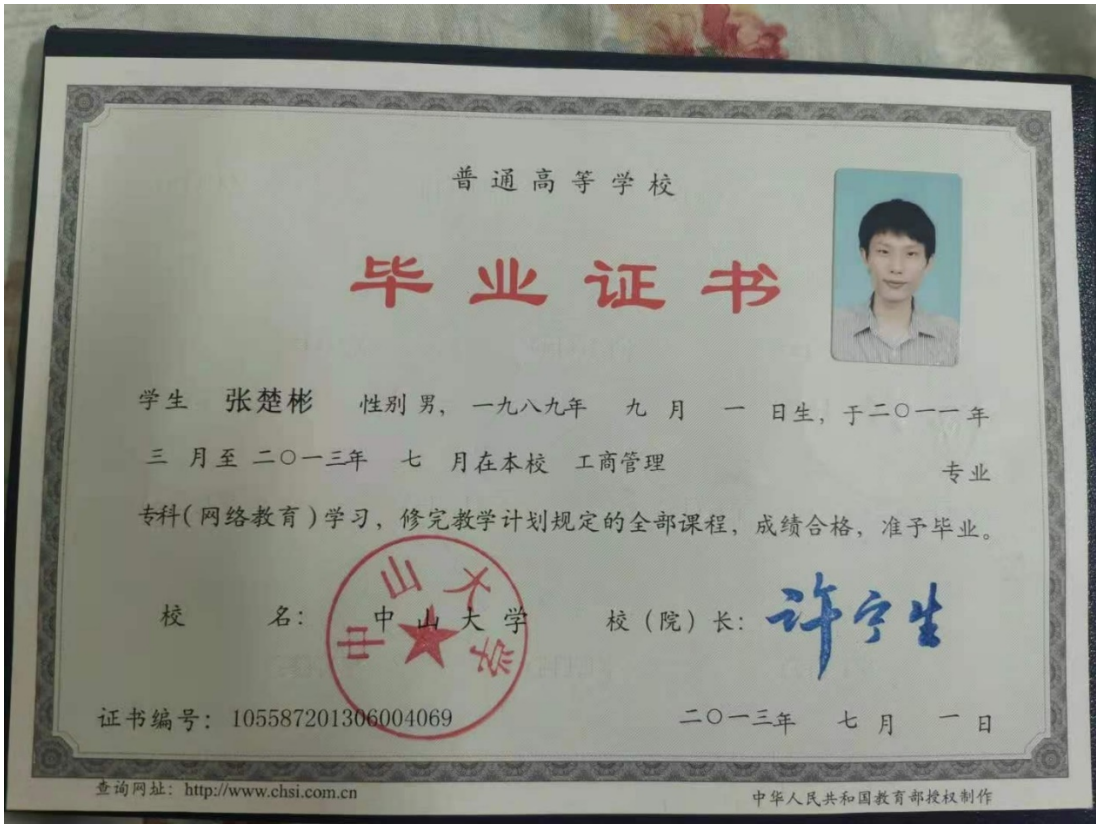 普通高等学校
毕业证书
学生 张楚彬 性别 男，一九八九年 九 月 一 日生，于二〇一一年
三 月至 二〇一三年 七 月在本校 工商管理 专业
专科（网络教育）学习，修完教学计划规定的全部课程，成绩合格，准予毕业。
校 名： 中山大学 校（院）长：许宁生
中山大学
证书编号：105587201306004069 二〇一三年 七 月 一 日
查询网址：http://www.chsi.com.cn 中华人民共和国教育部授权制作